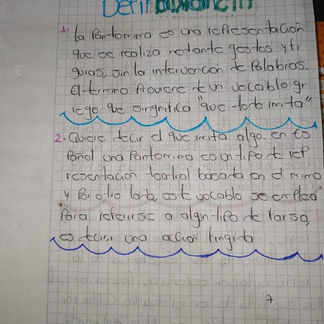 Definición
1. la Pantomima es una rePresentación
que se realiza mediante gestos y fi
guras, sin la intervención de Palabras.
El termino Aquiere un vocablo gr
iego que singnifica "que todo imita"
2. Quiere decir el que imita algo. en es
Pañol una Pantomima es un tipo de reP
resentación teatral basada en el mimo
y Por otro lado, este vocable se emplea
Para referirse a algn tipo de farsa,
es decir una acción fingida
7